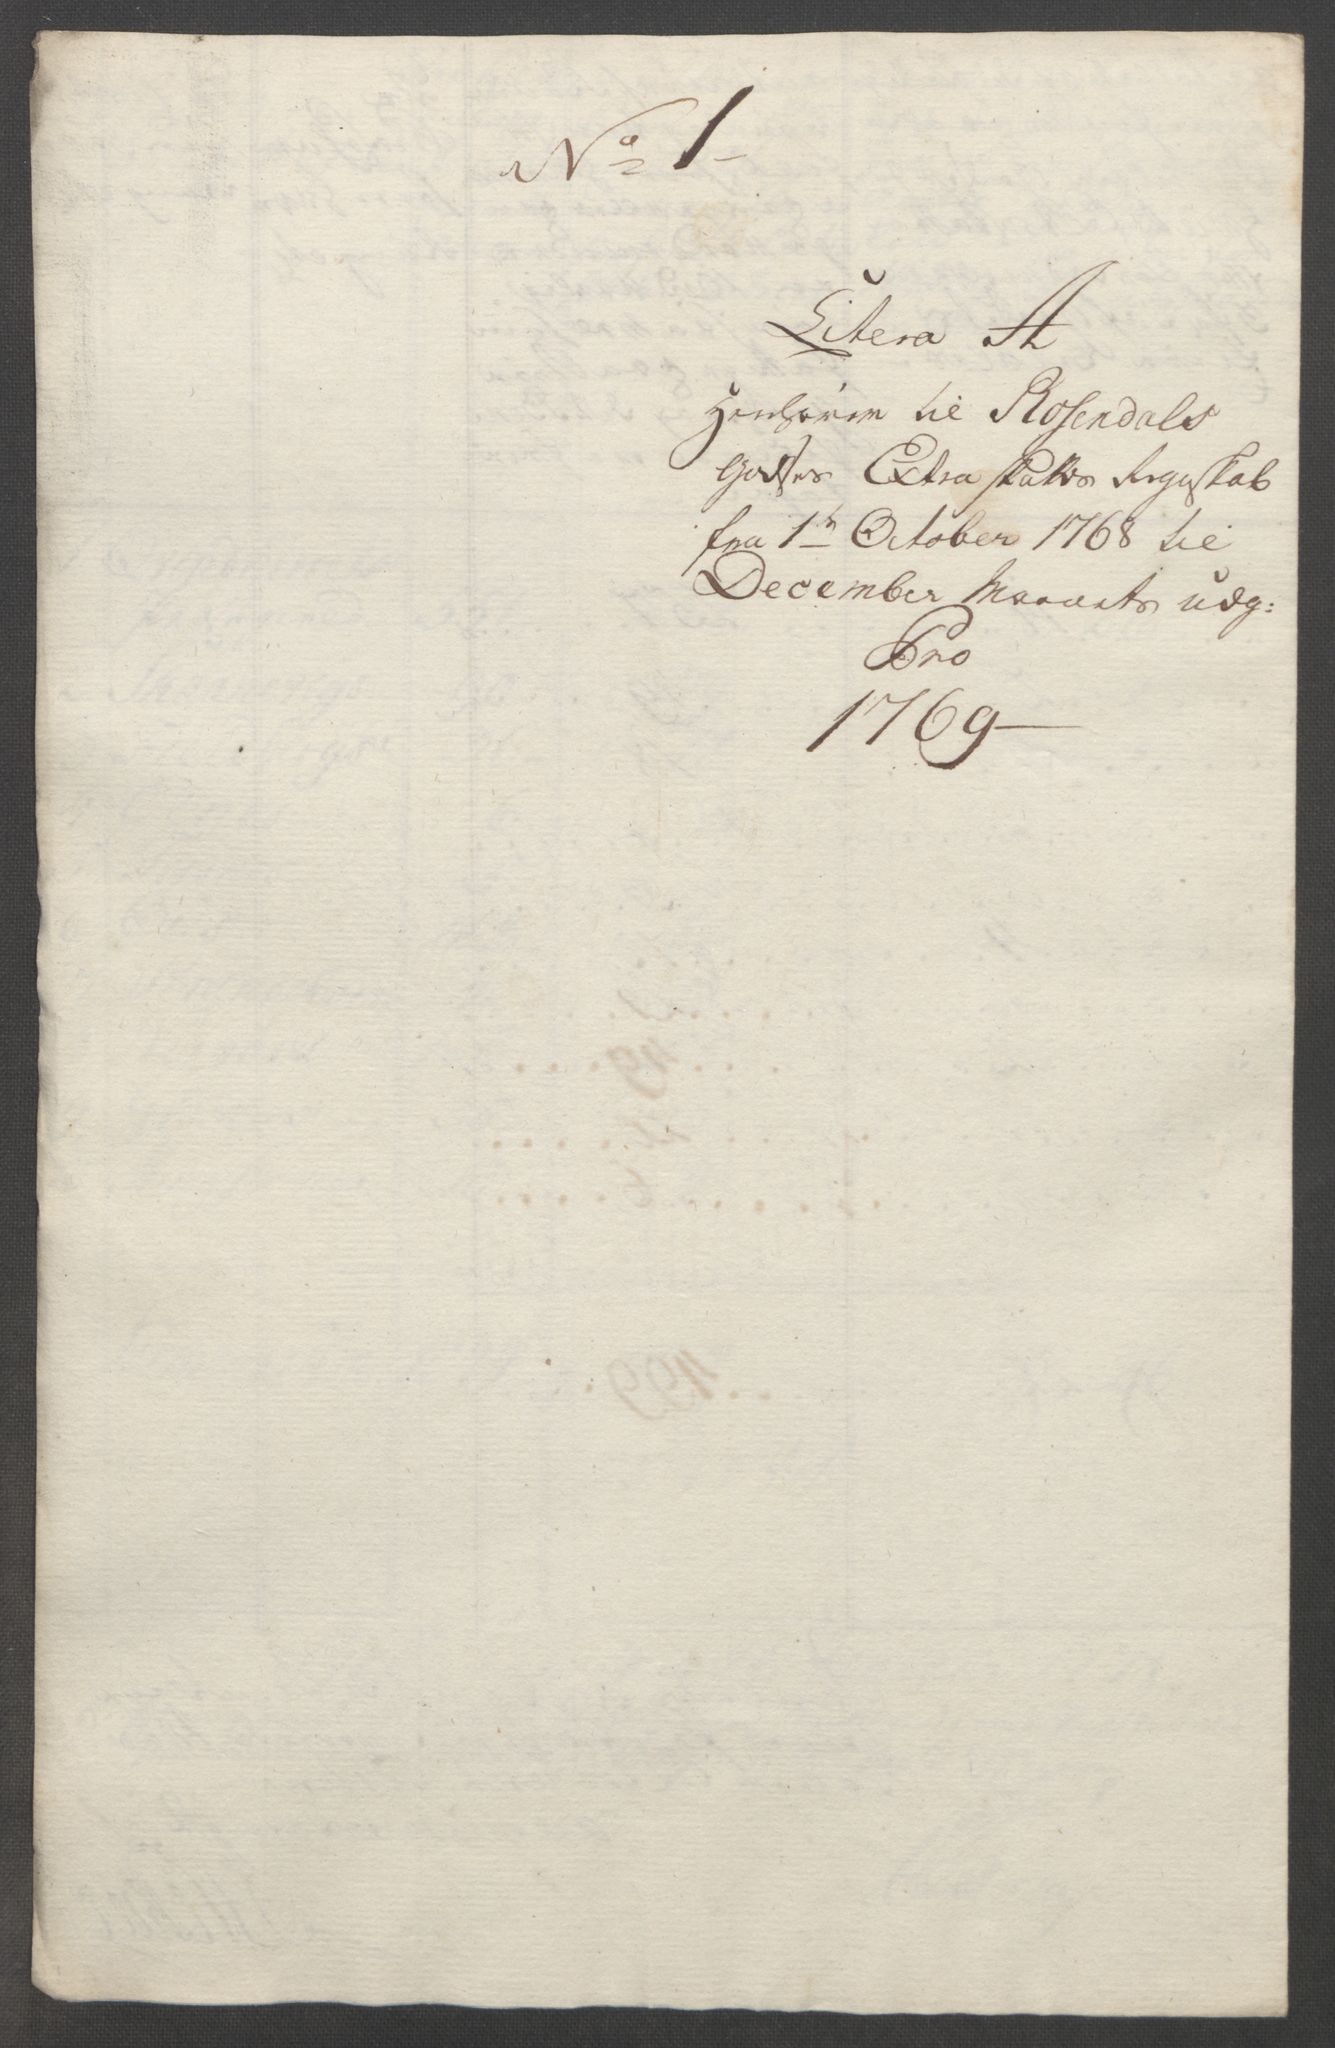 No 1
Litera A
Henhører til Rosendals
Godses Extra Skatts Regnskab
fra 1te October 1768 til
December Maanets udg:
Pro
1769